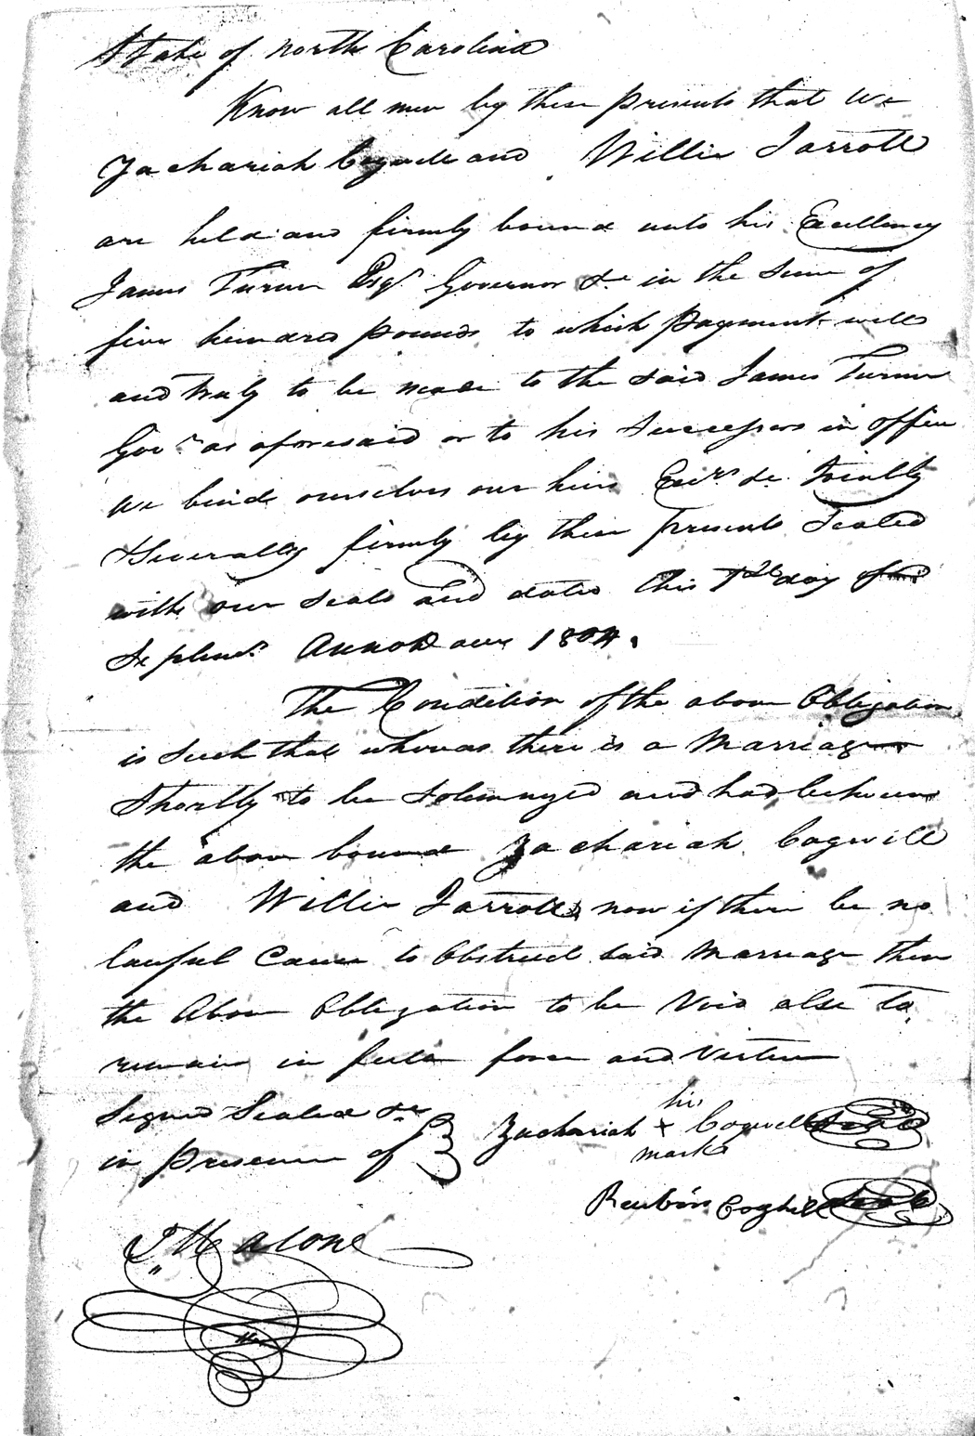 State of North Carolina
Know all men by these presents that We
Zachariah Cogwell and Willie Jarrott
are held and firmly bound unto his Excellency
James Turner Esqr Governor &c in the Sum of
five hundred pounds to which payment well
and truly to be made to the said James Turner
Govr as aforesaid or to his Successors in office
We bind ourselves our heirs Exrs &c Jointly
& Severally firmly by these presents Sealed
with our Seals and dated this day of
Septemr Anno Dom 1804.
The Condition of the above Obligation
is Such that whereas there is a Marriage
Shortly to be Solemnyzed and had between
the above bound Zachariah Cogwill
and Willie Jarrott now if there be no
lawful Cause to Obstruct said Marriage then
the Above Obligation to be Void else to
remain in full force and Virtue
Signed Sealed &c
in presence of
his
Zachariah x Cogwell Seal
mark
Reubin Coghill Seal
J Malone